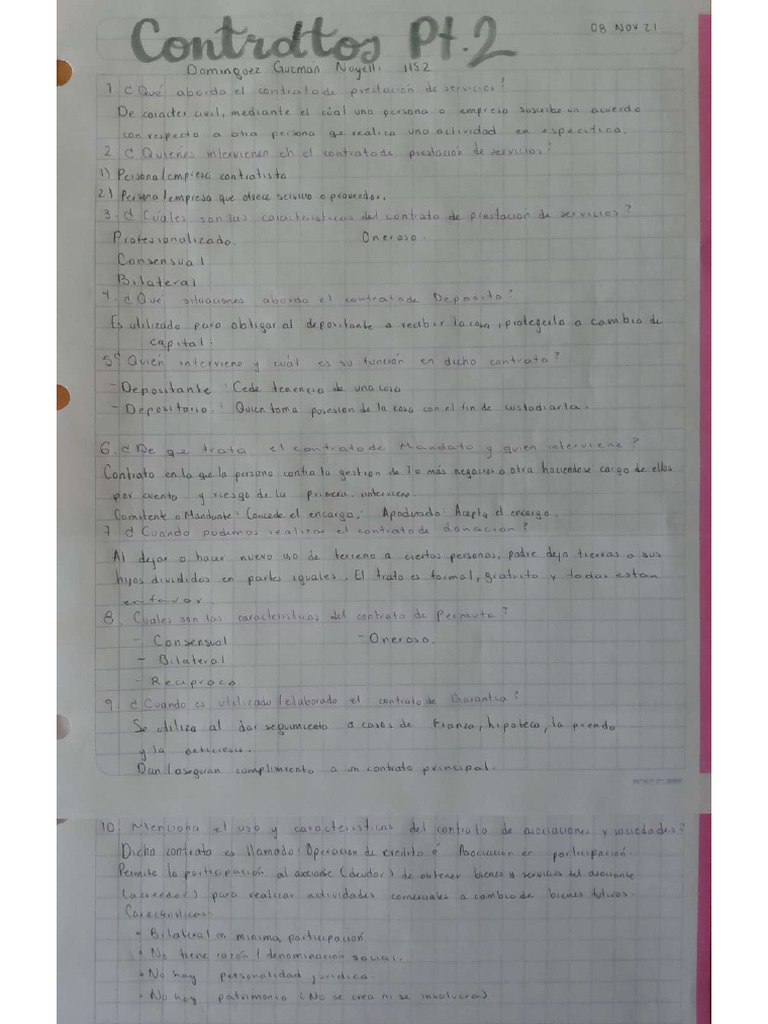 Contratos Pt.2
08 Nov 21
Dominguez Guzmán Nayelli 1152
1. ¿Qué aborda el contrato de prestación de servicios?
De caracter civil, mediante el cúal una persona o empresa suscribe un acuerdo
con respecto a otra persona que realiza una actividad en especifico.
2. ¿Quienes intervienen en el contrato de prestación de servicios?
1) Persona/empresa contratista
2) Persona/empresa que ofrece servicio o proveedor.
3. ¿Cuáles son las caracteristicas del contrato de prestación de servicios?
Profesionalizado. Oneroso.
Consensual
Bilateral
4. ¿Qué situaciones aborda el contrato de Deposito?
Es utilizado para obligar al depositante a recibir la cosa, protegerla a cambio de
capital.
5. ¿Quién interviene y cuál es su función en dicho contrato?
- Depositante: Cede tenencia de una cosa
- Depositario: Quien toma posesion de la cosa con el fin de custodiarla.
6. ¿De que trata el contrato de Mandato y quien interviene?
Contrato en la que la persona confia la gestion de 1 o más negocios a otra haciendose cargo de ellos
por cuenta y riesgo de la primera. interviene.
Comitente o Mandante: Concede el encargo, Apoderado: Acepta el encargo.
7. ¿Cuando podemos realizar el contrato de donacion?
Al dejar o hacer nuevo uso de terreno a ciertas personas, padre deja tierras a sus
hijos divididos en partes iguales. El trato es formal, gratuito y todas estan
en favor.
8. Cuales son las caracteristicas del contrato de Permuta?
- Consensual - Oneroso.
- Bilateral
- Reciproco
9. ¿Cuándo es utilizado/elaborado el contrato de Garantia?
Se utiliza al dar seguimiento a casos de Fianza, hipoteca, la prenda
y la anticresis.
Dan/aseguran cumplimiento a un contrato principal.
10. Menciona el uso y caracteristicas del contrato de asociaciones y sociedades?
Dicho contrato es llamado: Operacion de credito ó Asociacion en participación.
Permite la participación al asociante (deudor) de obtener bienes o servicios del asociante
(acreedor) para realizar actividades comerciales a cambio de bienes futuros.
Caracteristicas:
• Bilateral en minima participación
• No tiene razón/denominación social.
• No hay personalidad juridica.
• No hay patrimonio (No se crea ni se involucra).